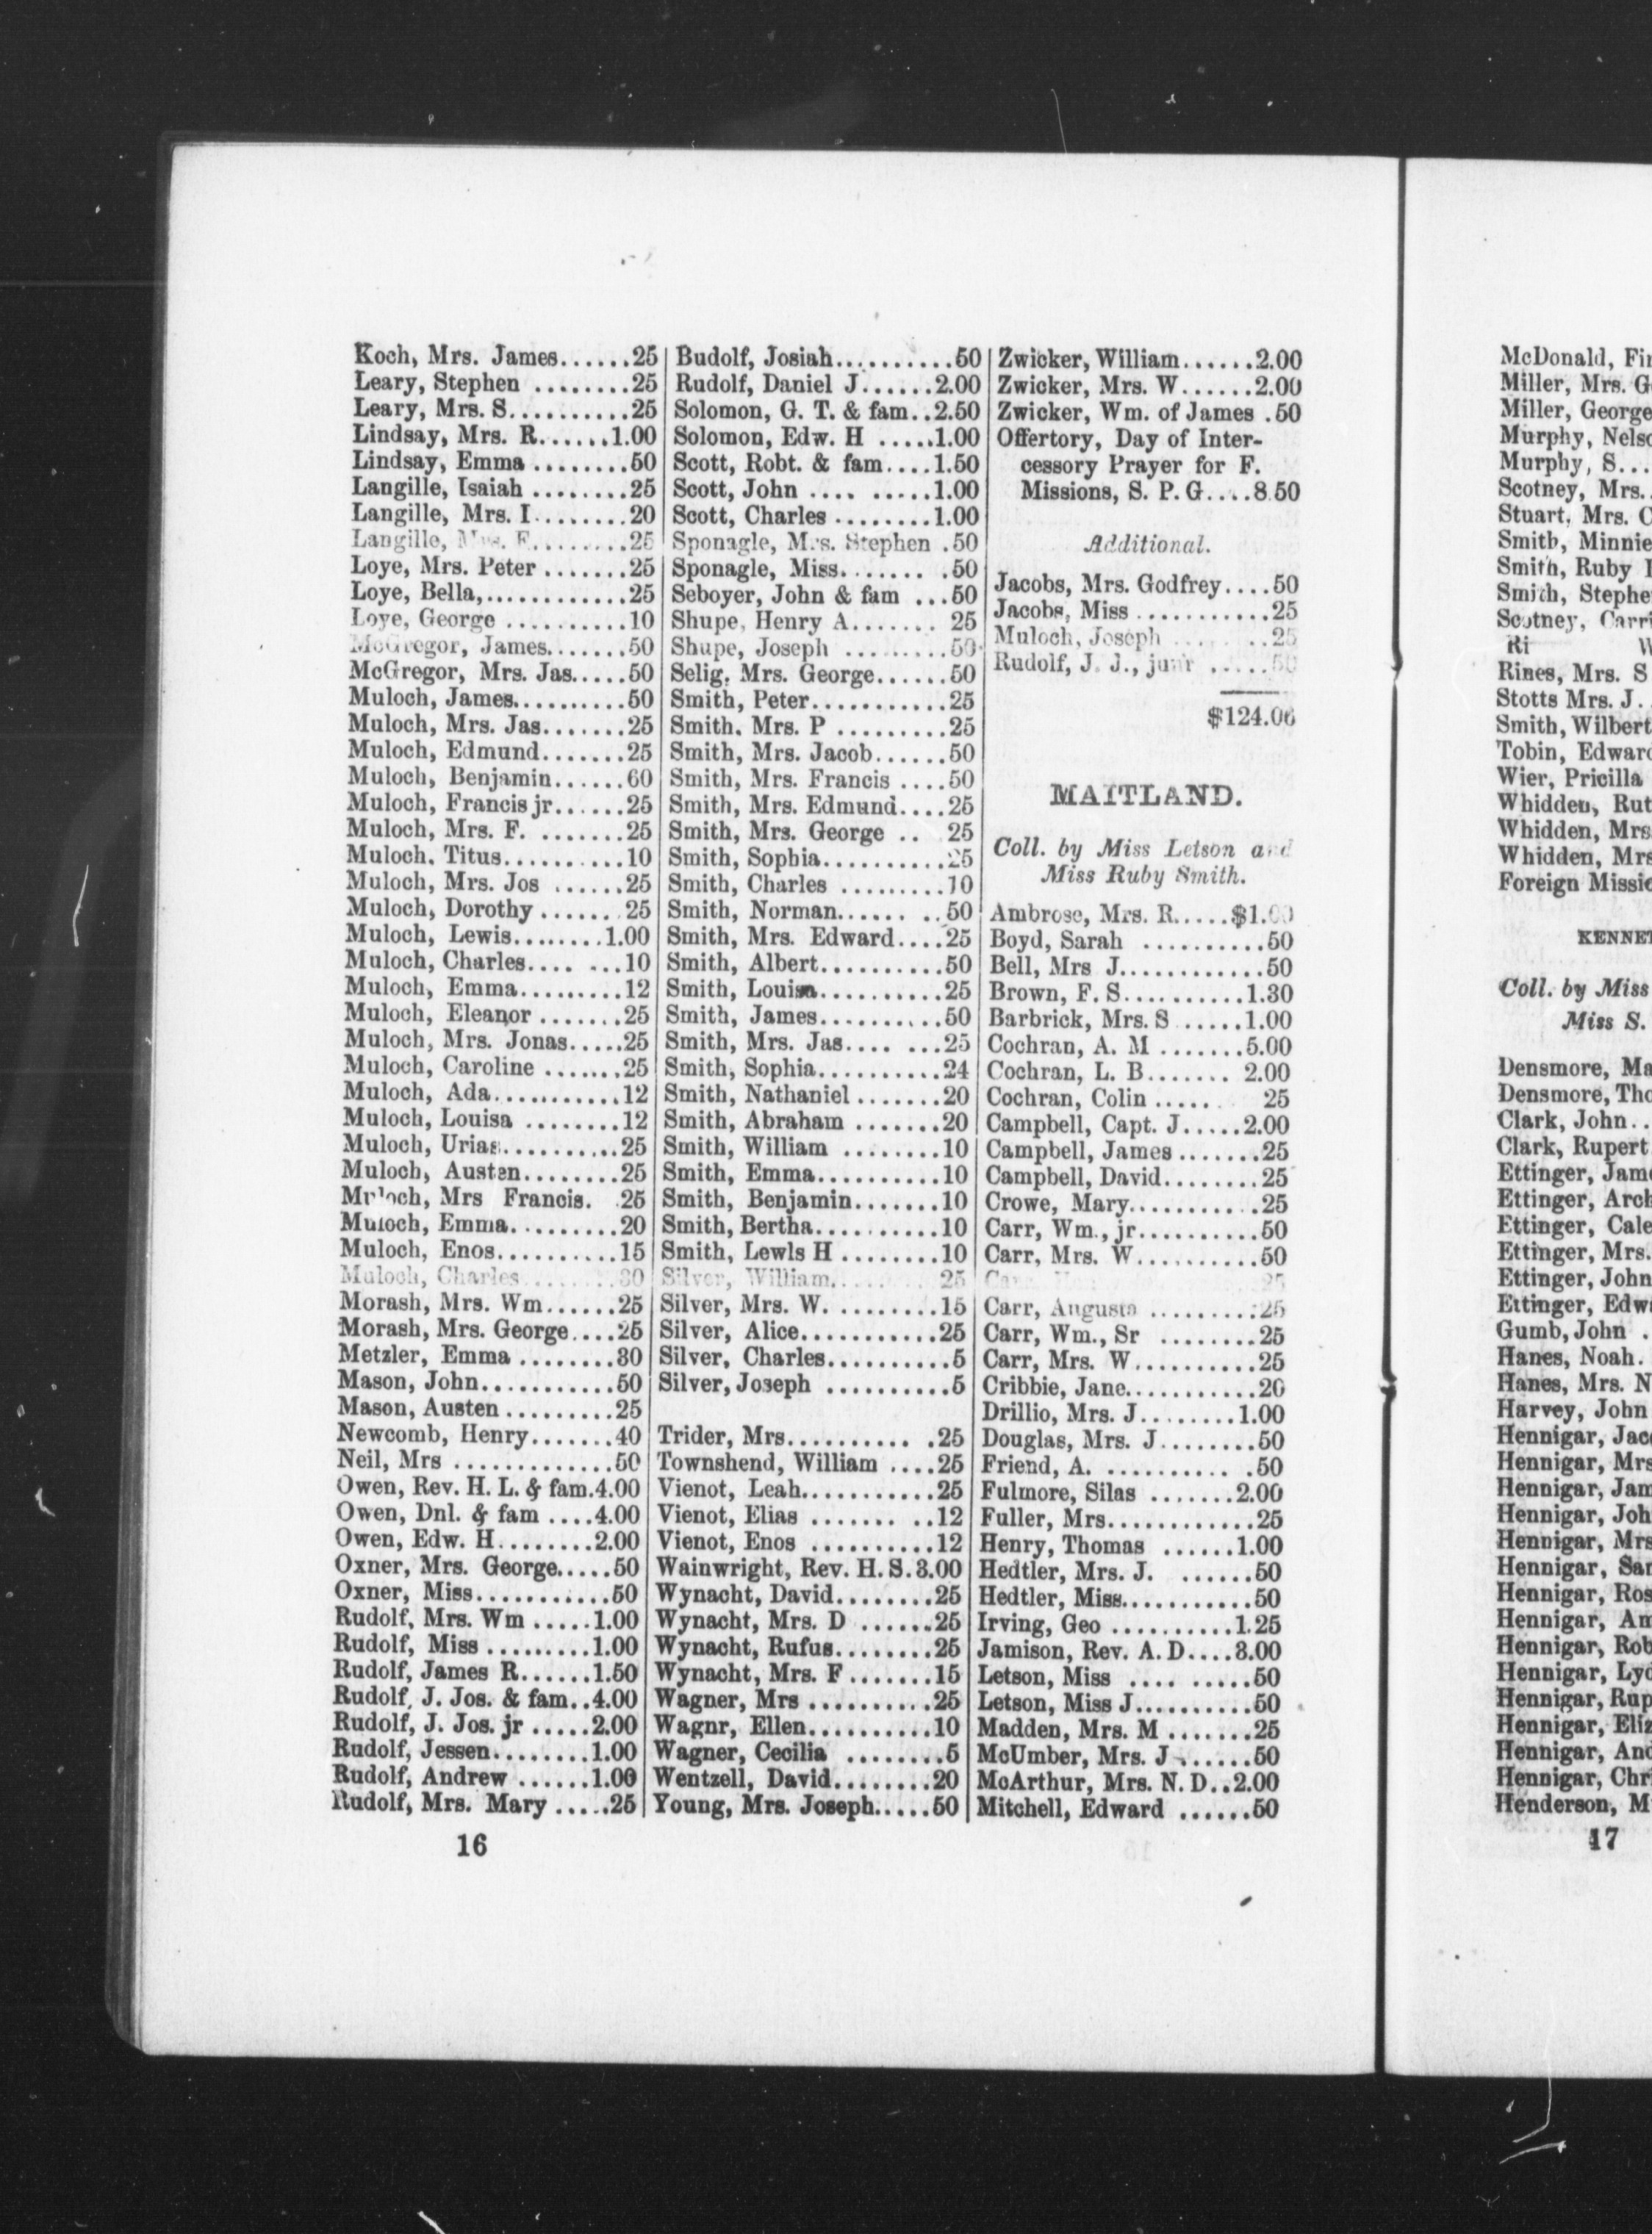 Koch, Mrs. James......25
Leary, Stephen ........25
Leary, Mrs. S..........25
Lindsay, Mrs. R......1.00
Lindsay, Emma ........50
Langille, Isaiah ........25
Langille, Mrs. I........20
Langille, Mrs. F........25
Loye, Mrs. Peter .......25
Loye, Bella,............25
Loye, George ..........10
McGregor, James.......50
McGregor, Mrs. Jas.....50
Muloch, James..........50
Muloch, Mrs. Jas.......25
Muloch, Edmund.......25
Muloch, Benjamin......60
Muloch, Francis jr......25
Muloch, Mrs. F. .......25
Muloch, Titus..........10
Muloch, Mrs. Jos ......25
Muloch, Dorothy .......25
Muloch, Lewis........1.00
Muloch, Charles.... ...10
Muloch, Emma.........12
Muloch, Eleanor .......25
Muloch, Mrs. Jonas.....25
Muloch, Caroline .......25
Muloch, Ada...........12
Muloch, Louisa ........12
Muloch, Urias..........25
Muloch, Austen........25
Muloch, Mrs Francis. .25
Muloch, Emma.........20
Muloch, Enos..........15
Muloch, Charles........30
Morash, Mrs. Wm......25
Morash, Mrs. George....25
Metzler, Emma ........30
Mason, John...........50
Mason, Austen .........25
Newcomb, Henry.......40
Neil, Mrs .............50
Owen, Rev. H. L. & fam.4.00
Owen, Dnl. & fam ....4.00
Owen, Edw. H........2.00
Oxner, Mrs. George.....50
Oxner, Miss...........50
Rudolf, Mrs. Wm .....1.00
Rudolf, Miss .........1.00
Rudolf, James R......1.50
Rudolf, J. Jos. & fam..4.00
Rudolf, J. Jos. jr .....2.00
Rudolf, Jessen........1.00
Rudolf, Andrew ......1.00
Rudolf, Mrs. Mary .....25
16
Budolf, Josiah..........50
Rudolf, Daniel J......2.00
Solomon, G. T. & fam..2.50
Solomon, Edw. H .....1.00
Scott, Robt. & fam....1.50
Scott, John .... .....1.00
Scott, Charles ........1.00
Sponagle, Mrs. Stephen .50
Sponagle, Miss....... .50
Seboyer, John & fam ...50
Shupe, Henry A....... 25
Shupe, Joseph .........50
Selig, Mrs. George......50
Smith, Peter...........25
Smith. Mrs. P .........25
Smith, Mrs. Jacob......50
Smith, Mrs. Francis ....50
Smith, Mrs. Edmund....25
Smith, Mrs. George .. 25
Smith, Sophia..........25
Smith, Charles .........10
Smith, Norman...... ..50
Smith, Mrs. Edward....25
Smith, Albert..........50
Smith, Louisa..........25
Smith, James..........50
Smith, Mrs. Jas.... ...25
Smith, Sophia..........24
Smith, Nathaniel .......20
Smith, Abraham .......20
Smith, William ........10
Smith, Emma..........10
Smith, Benjamin.......10
Smith, Bertha..........10
Smith, Lewls H ........10
Silver, William.........25
Silver, Mrs. W. ........15
Silver, Alice...........25
Silver, Charles..........5
Silver, Joseph ..........5
Trider, Mrs.......... .25
Townshend, William ....25
Vienot, Leah...........25
Vienot, Elias ....... ..12
Vienot, Enos ..........12
Wainwright, Rev. H. S.3.00
Wynacht, David........25
Wynacht, Mrs. D ......25
Wynacht, Rufus........25
Wynacht, Mrs. F.......15
Wagner, Mrs ..........25
Wagnr, Ellen..........10
Wagner, Cecilia ........5
Wentzell, David........20
Young, Mrs. Joseph.....50
Zwicker, William......2.00
Zwicker, Mrs. W......2.00
Zwicker, Wm. of James .50
Offertory, Day of Inter-
cessory Prayer for F.
Missions, S. P. G....8.50
Additional.
Jacobs, Mrs. Godfrey....50
Jacobs, Miss ...........25
Muloch, Joseph ..... ..25
Rudolf, J. J., jun'r .....50
$124.06
MAITLAND.
Coll. by Miss Letson and
Miss Ruby Smith.
Ambrose, Mrs. R.....$1.00
Boyd, Sarah ..........50
Bell, Mrs J............50
Brown, F. S..........1.30
Barbrick, Mrs. S ......1.00
Cochran, A. M .......5.00
Cochran, L. B....... 2.00
Cochran, Colin ...... 25
Campbell, Capt. J.....2.00
Campbell, James .......25
Campbell, David........25
Crowe, Mary...........25
Carr, Wm., jr..........50
Carr, Mrs. W..........50
25
Carr, Augusta .........25
Carr, Wm., Sr ........25
Carr, Mrs. W..........25
Cribbie, Jane...........20
Drillio, Mrs. J........1.00
Douglas, Mrs. J........50
Friend, A. .......... .50
Fulmore, Silas .......2.00
Fuller, Mrs............25
Henry, Thomas ......1.00
Hedtler, Mrs. J. ......50
Hedtler, Miss...........50
Irving, Geo ..........1.25
Jamison, Rev. A. D....3.00
Letson, Miss .... .....50
Letson, Miss J..........50
Madden, Mrs. M .......25
McUmber, Mrs. J ......50
McArthur, Mrs. N. D..2.00
Mitchell, Edward ......50
McDonald, Fin
Miller, Mrs. G
Miller, George
Murphy, Nelso
Murphy, S...
Scotney, Mrs..
Stuart, Mrs. C
Smith, Minnie
Smith, Ruby
Smith, Stephe
Scotney, Carri
Ri W
Rines, Mrs. S
Stotts Mrs. J..
Smith, Wilbert
Tobin, Edward
Wier, Pricilla
Whidden, Rut
Whidden, Mrs
Whidden, Mrs
Foreign Missio
KENNET
Coll. by Miss
Miss S.
Densmore, Ma
Densmore, Tho
Clark, John..
Clark, Rupert
Ettinger, Jame
Ettinger, Arch
Ettinger, Cale
Ettinger, Mrs.
Ettinger, John
Ettinger, Edwa
Gumb, John .
Hanes, Noah.
Hanes, Mrs. N
Harvey, John
Hennigar, Jaco
Hennigar, Mrs
Hennigar, Jam
Hennigar, Joh
Hennigar, Mrs
Hennigar, Sar
Hennigar, Ros
Hennigar, An
Hennigar, Rob
Hennigar, Lyd
Hennigar, Rup
Hennigar, Eliz
Hennigar, And
Hennigar, Chr
Henderson, M
17